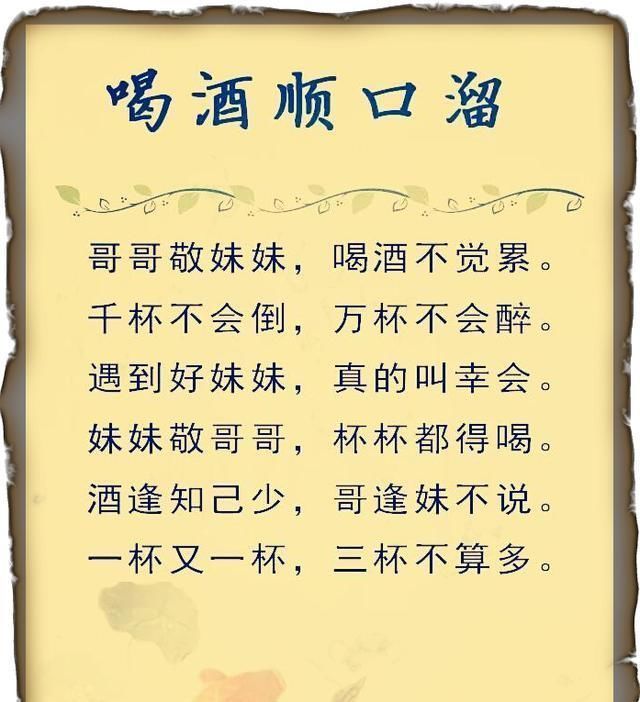 喝酒顺口溜
哥哥敬妹妹，喝酒不觉累。
千杯不会倒，万杯不会醉。
遇到好妹妹，真的叫幸会。
妹妹敬哥哥，杯杯都得喝。
酒逢知己少，哥逢妹不说。
一杯又一杯，三杯不算多。